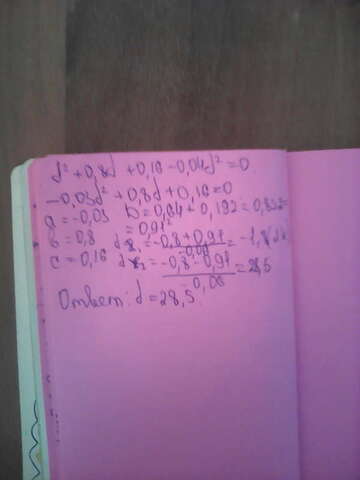 d² + 0,8d + 0,16 - 0,04d² = 0
-0,03d² + 0,8d + 0,16 = 0
a = -0,03 D = 0,64 + 0,192 = 0,832 =
b = 0,8 = 0,91²
c = 0,16 = -0,8 + 0,91 / -0,06 = -1,8
= -0,8 - 0,91 / -0,06 = 28,5
Ответ: d = 28,5